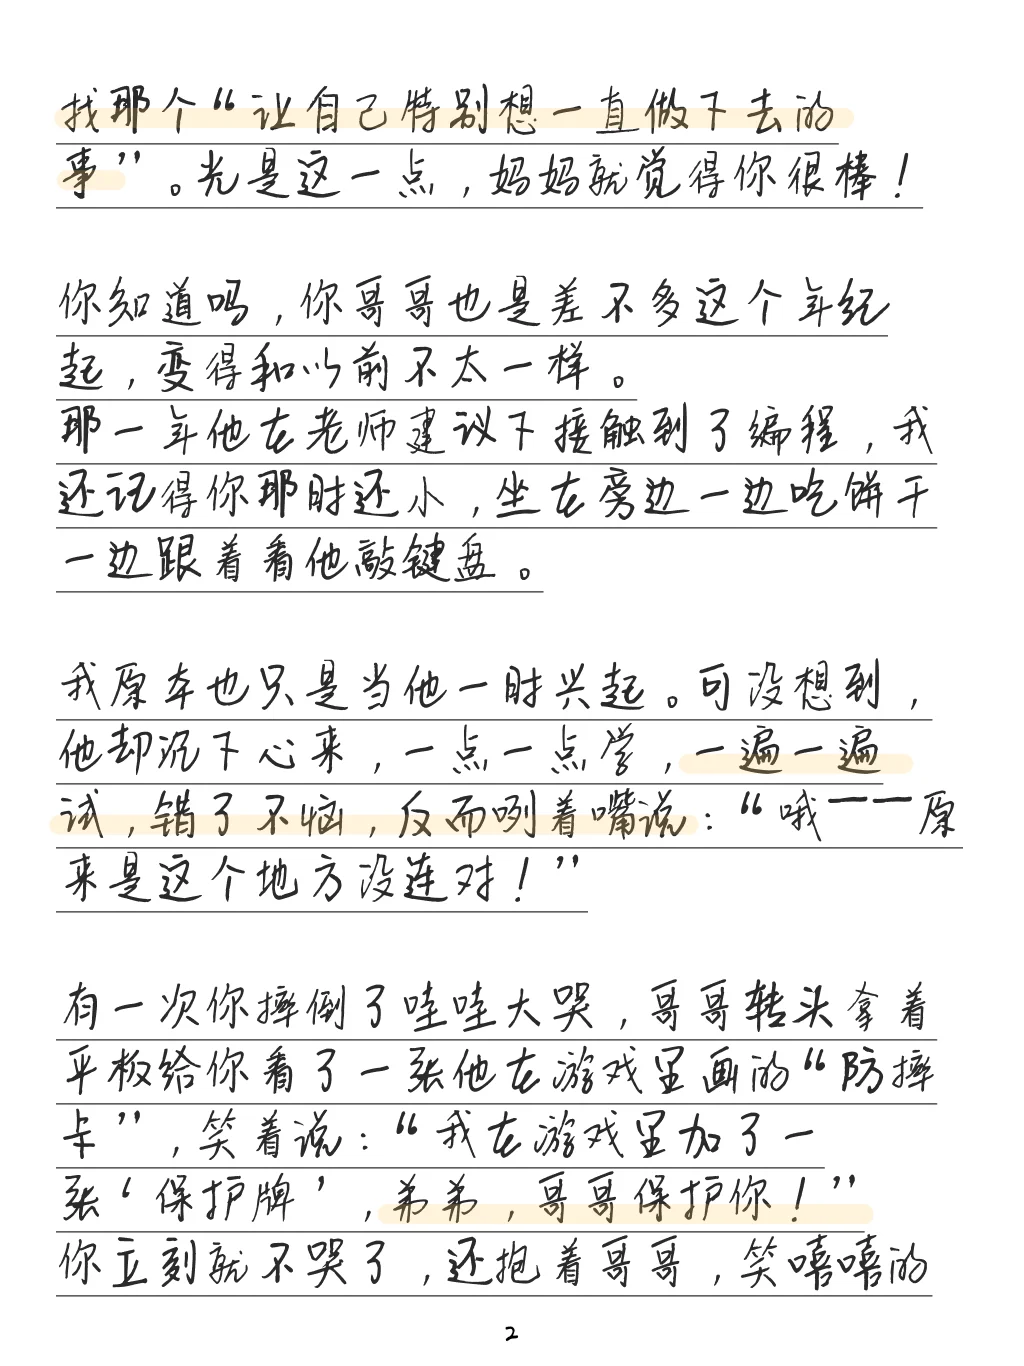 找那个“让自己特别想一直做下去的
事”。光是这一点，妈妈就觉得你很棒！
你知道吗，你哥哥也是差不多这个年纪
起，变得和以前不太一样。
那一年他在老师建议下接触到了编程，我
还记得你那时还小，坐在旁边一边吃饼干
一边跟着看他敲键盘。
我原本也只是当他一时兴起。可没想到，
他却沉下心来，一点一点学，一遍一遍
试，错了不恼，反而咧着嘴说：“哦——原
来是这个地方没连对！”
有一次你摔倒了哇哇大哭，哥哥转头拿着
平板给你看了一张他在游戏里画的“防摔
卡”，笑着说：“我在游戏里加了一
张‘保护牌’，弟弟，哥哥保护你！”
你立刻就不哭了，还抱着哥哥，笑嘻嘻的
2